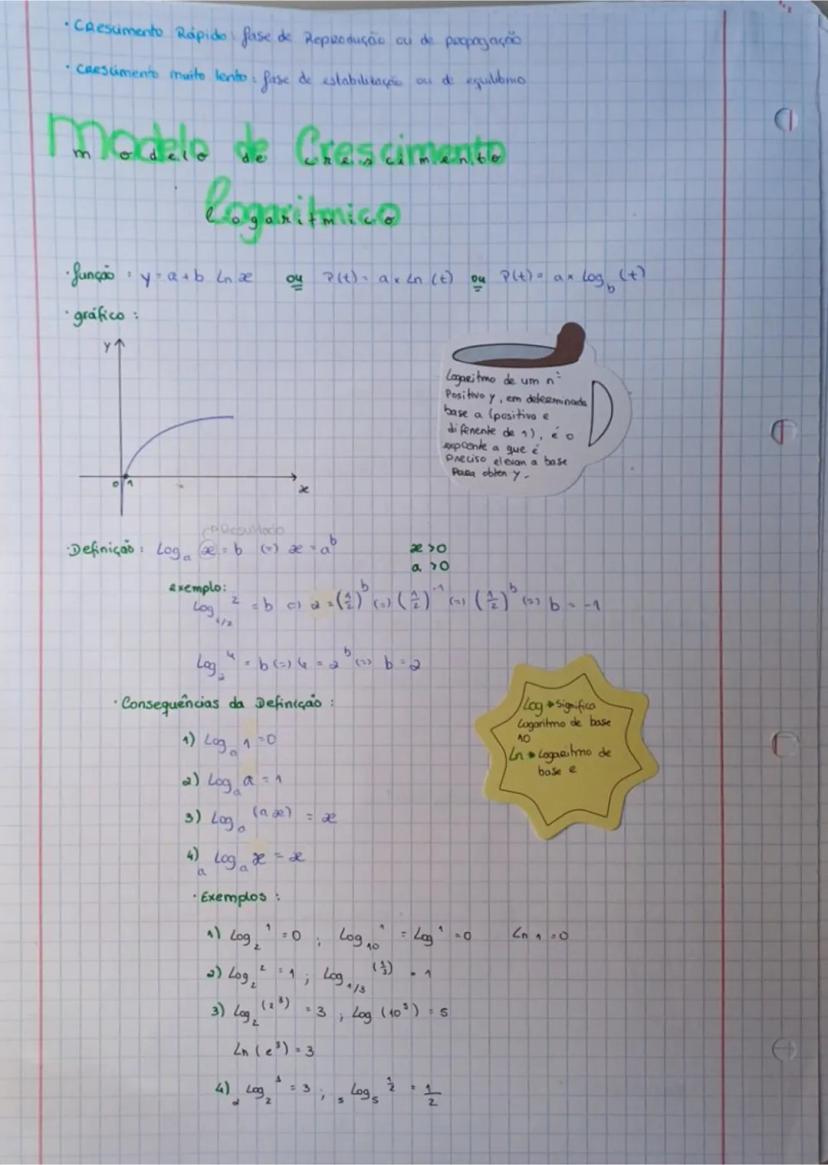 · Crescimento Rápido: fase de Reprodução ou de propagação
· Crescimento muito lento: fase de estabilização ou de equilíbrio
Modelo de Crescimento
Logarítmico
· função: y = a + b Ln x ou P(t) = a × Ln (t) ou P(t) = a × Log_b (t)
· gráfico:
y
0 1
x
Logaritmo de um nº
Positivo y, em determinada
base a (positiva e
diferente de 1), é o
expoente a que é
Preciso elevar a base
Para obter y.
Resultado
· Definição: Log_a x = b (=) x = a^b
x > 0
a > 0
exemplo:
Log_1/2 2 = b (=) 2 = (1/2)^b (=) (1/2)^-1 (=) (1/2)^b (=) b = -1
Log_2 4 = b (=) 4 = 2^b (=) b = 2
· Consequências da Definição:
1) Log_a 1 = 0
2) Log_a a = 1
3) Log_a (a x) = x
4) a Log_a x = x
Log → significa
Logaritmo de base
10
Ln → Logaritmo de
base e
· Exemplos:
1) Log_2 1 = 0 ; Log_10 1 = Log 1 = 0 Ln 1 = 0
2) Log_2 2 = 1 ; Log_1/3 (1/3) = 1
3) Log_2 (2^3) = 3 ; Log (10^5) = 5
Ln (e^3) = 3
4) 2 Log_2 3 = 3 ; 5 Log_5 1/2 = 1/2